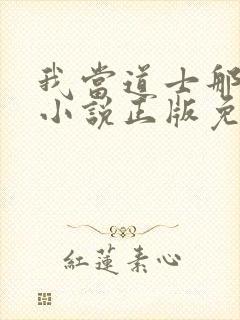 我當道士那
小說正版免
紅蓮素心